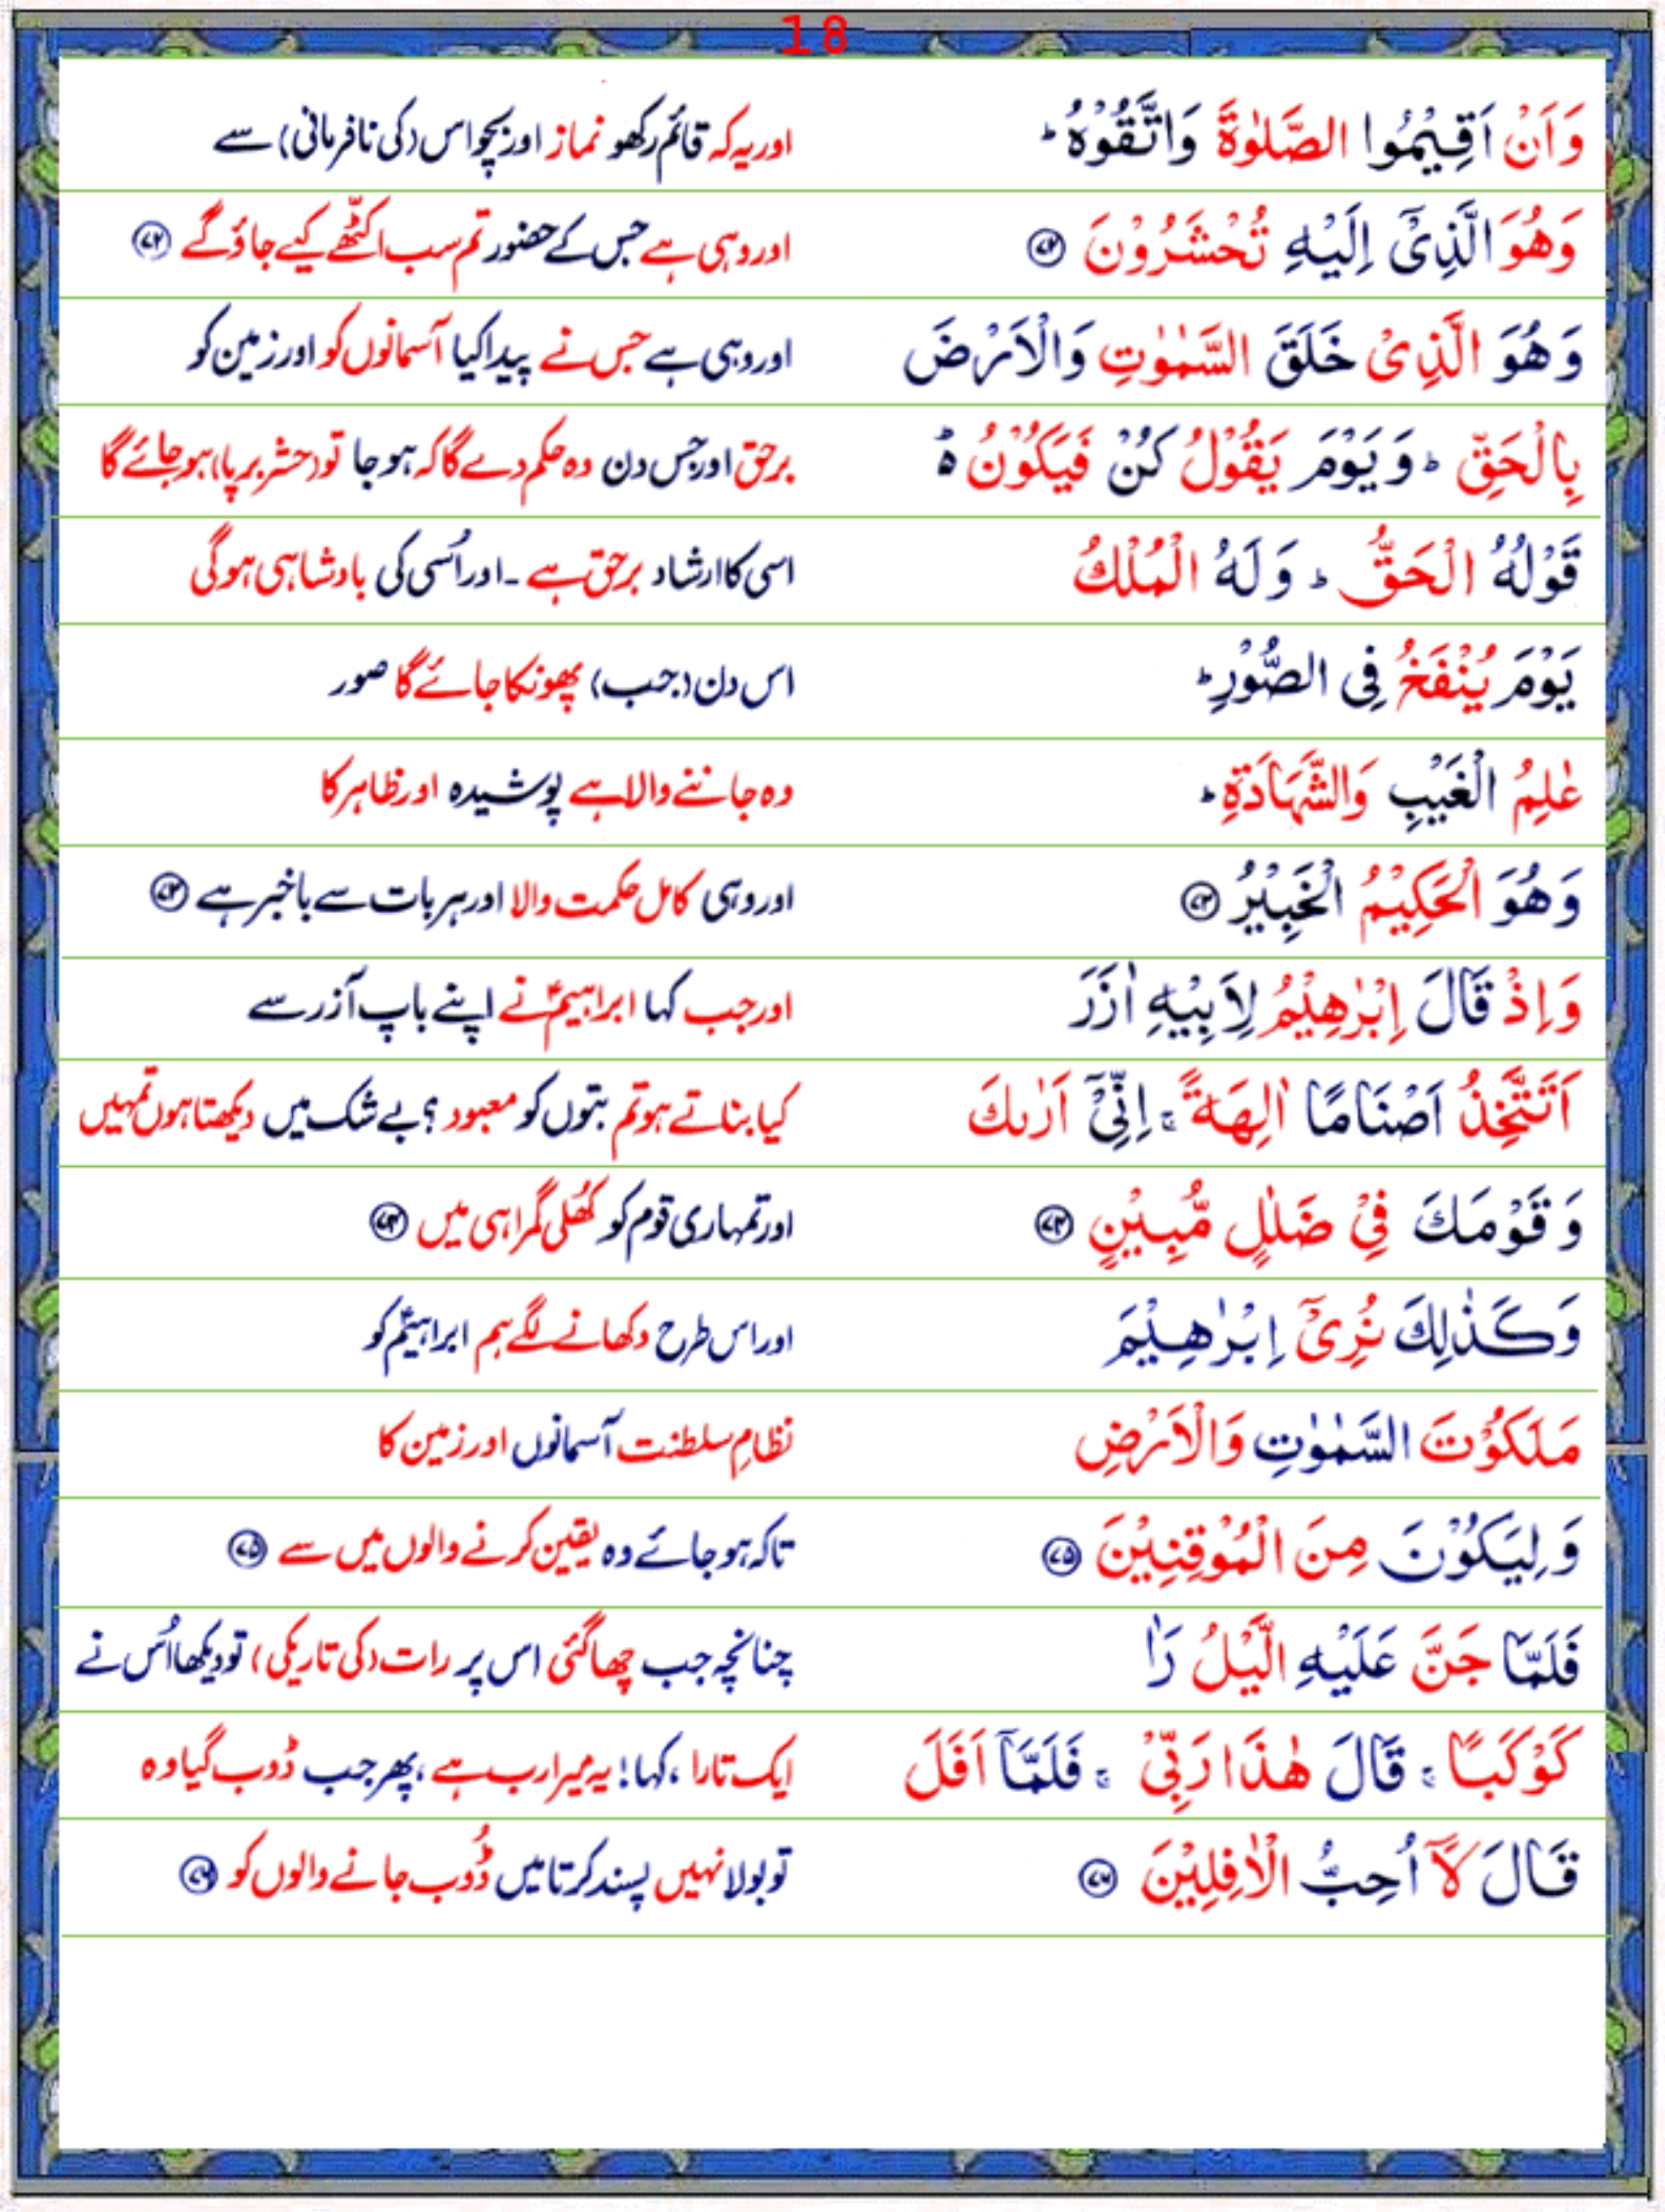 18
وَاَنْ اَقِيْمُوا الصَّلٰوةَ وَاتَّقُوْهُ ؕ اور یہ کہ قائم رکھو نماز اور بچو اس (کی نافرمانی) سے
وَهُوَ الَّذِیْۤ اِلَيْهِ تُحْشَرُوْنَ ﴿۷۲﴾ اور وہی ہے جس کے حضور تم سب اکٹّھے کیے جاؤ گے ﴿۷۲﴾
وَهُوَ الَّذِیْ خَلَقَ السَّمٰوٰتِ وَالْاَرْضَ اور وہی ہے جس نے پیدا کیا آسمانوں کو اور زمین کو
بِالْحَقِّ ؕ وَيَوْمَ يَقُوْلُ كُنْ فَيَكُوْنُ ۬ؕ برحق اور جس دن وہ حکم دے گا کہ ہو جا تو (حشر برپا) ہو جائے گا
قَوْلُهُ الْحَقُّ ؕ وَلَهُ الْمُلْكُ اسی کا ارشاد برحق ہے ۔ اور اُسی کی بادشاہی ہوگی
يَوْمَ يُنْفَخُ فِی الصُّوْرِ ؕ اس دن (جب) پھونکا جائے گا صور
عٰلِمُ الْغَيْبِ وَالشَّهَادَةِ ؕ وہ جاننے والا ہے پوشیدہ اور ظاہر کا
وَهُوَ الْحَكِيْمُ الْخَبِيْرُ ﴿۷۳﴾ اور وہی کامل حکمت والا اور ہر بات سے باخبر ہے ﴿۷۳﴾
وَاِذْ قَالَ اِبْرٰهِيْمُ لِاَبِيْهِ اٰزَرَ اور جب کہا ابراہیمؑ نے اپنے باپ آزر سے
اَتَتَّخِذُ اَصْنَامًا اٰلِهَةً ۚ اِنِّیْۤ اَرٰىكَ کیا بناتے ہو تم بتوں کو معبود ؟ بے شک میں دیکھتا ہوں تمہیں
وَقَوْمَكَ فِیْ ضَلٰلٍ مُّبِيْنٍ ﴿۷۴﴾ اور تمہاری قوم کو کُھلی گمراہی میں ﴿۷۴﴾
وَكَذٰلِكَ نُرِیْۤ اِبْرٰهِيْمَ اور اس طرح دکھانے لگے ہم ابراہیمؑ کو
مَلَكُوْتَ السَّمٰوٰتِ وَالْاَرْضِ نظامِ سلطنت آسمانوں اور زمین کا
وَلِيَكُوْنَ مِنَ الْمُوْقِنِيْنَ ﴿۷۵﴾ تاکہ ہو جائے وہ یقین کرنے والوں میں سے ﴿۷۵﴾
فَلَمَّا جَنَّ عَلَيْهِ الَّيْلُ رَاٰ چنانچہ جب چھا گئی اس پر رات (کی تاریکی) تو دیکھا اُس نے
كَوْكَبًا ۚ قَالَ هٰذَا رَبِّیْ ۚ فَلَمَّاۤ اَفَلَ ایک تارا، کہا! یہ میرا رب ہے، پھر جب ڈوب گیا وہ
قَالَ لَاۤ اُحِبُّ الْاٰفِلِيْنَ ﴿۷۶﴾ تو بولا نہیں پسند کرتا میں ڈُوب جانے والوں کو ﴿۷۶﴾